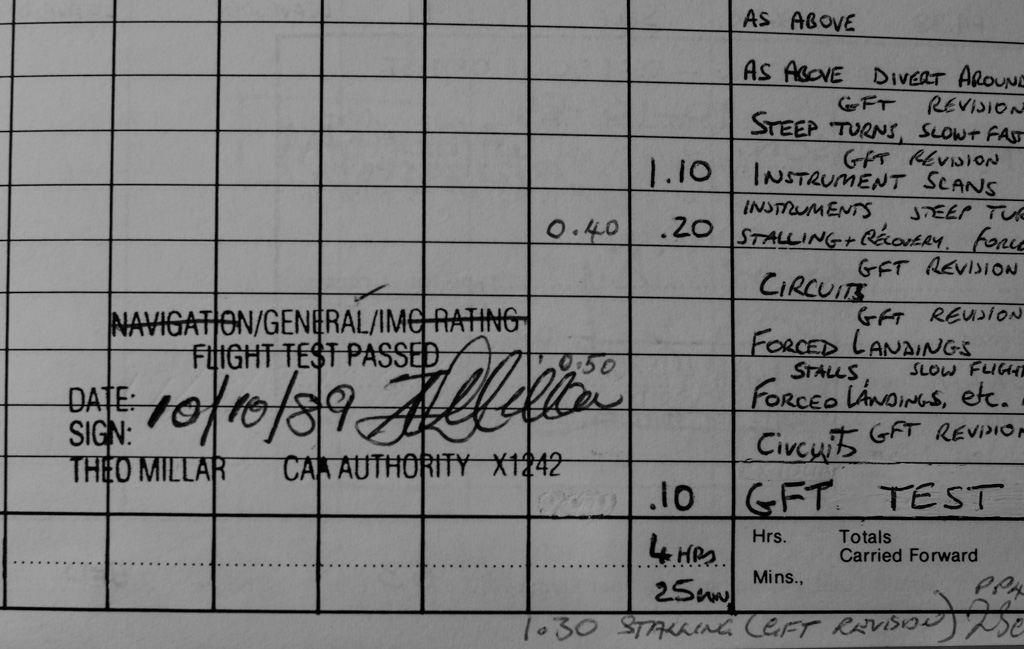 AS ABOVE
AS ABOVE DIVERT AROUND
GFT REVISION
STEEP TURNS, SLOW + FAST
GFT REVISION
1.10 INSTRUMENT SCANS
INSTRUMENTS, STEEP TUR
0.40 .20 STALLING + RECOVERY. FORCE
GFT REVISION
CIRCUITS
NAVIGATION/GENERAL/IMC RATING
GFT REVISION
FLIGHT TEST PASSED
FORCED LANDINGS
0.50 STALLS, SLOW FLIGHT
DATE: 10/10/89
FORCED LANDINGS, etc.
SIGN:
Circuits GFT REVISION
THEO MILLAR CAA AUTHORITY X1242
.10 GFT TEST
4 HRS Hrs. Totals
Carried Forward
25 Mins.,
1.30 STALLING (GFT REVISION)